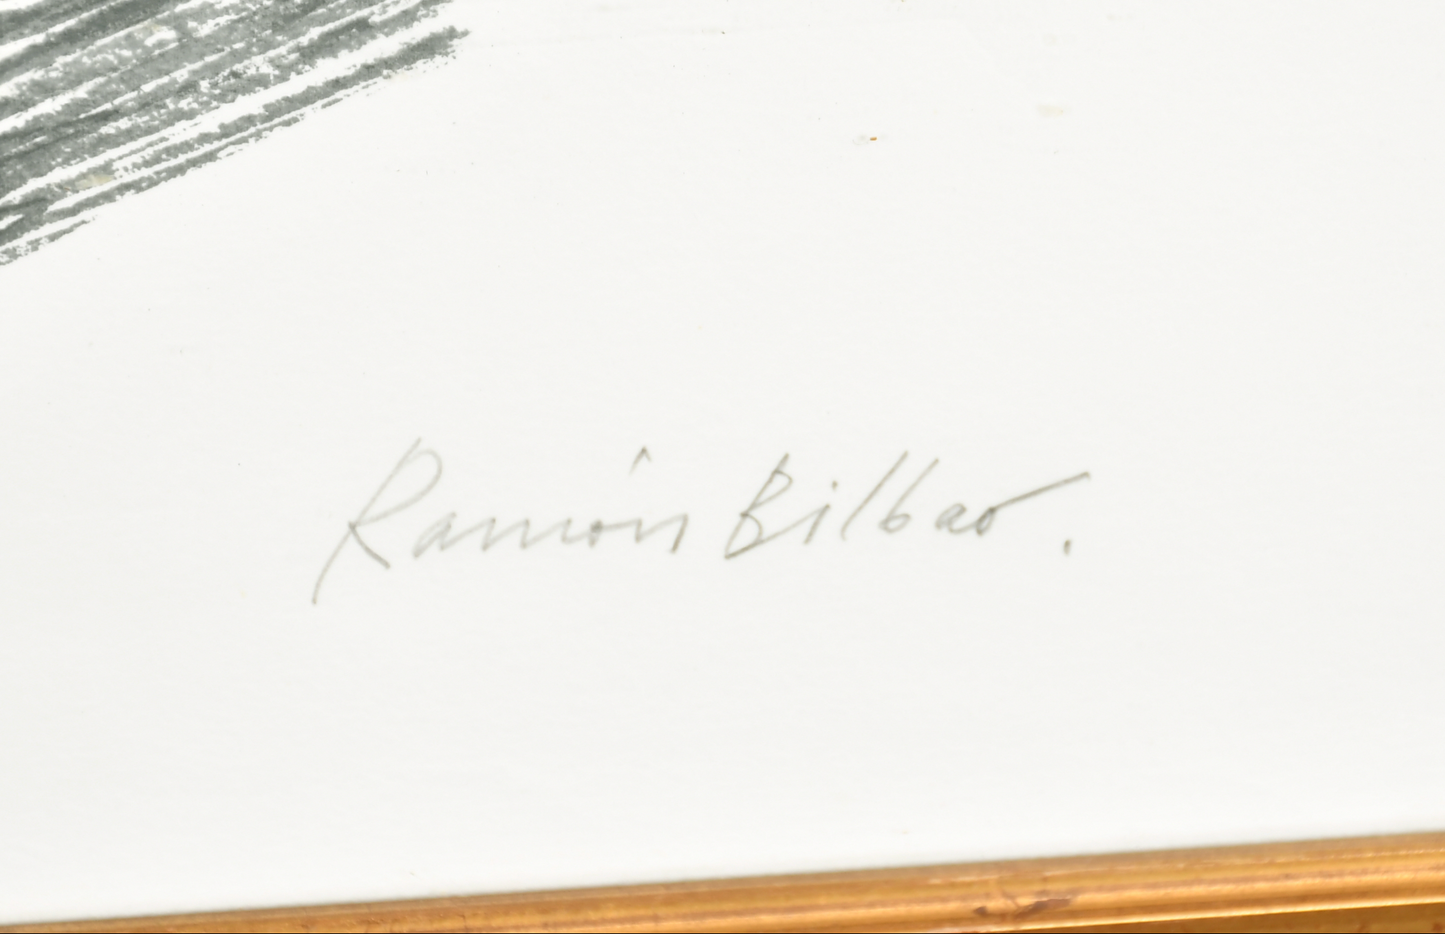 Ramón Bilbao.